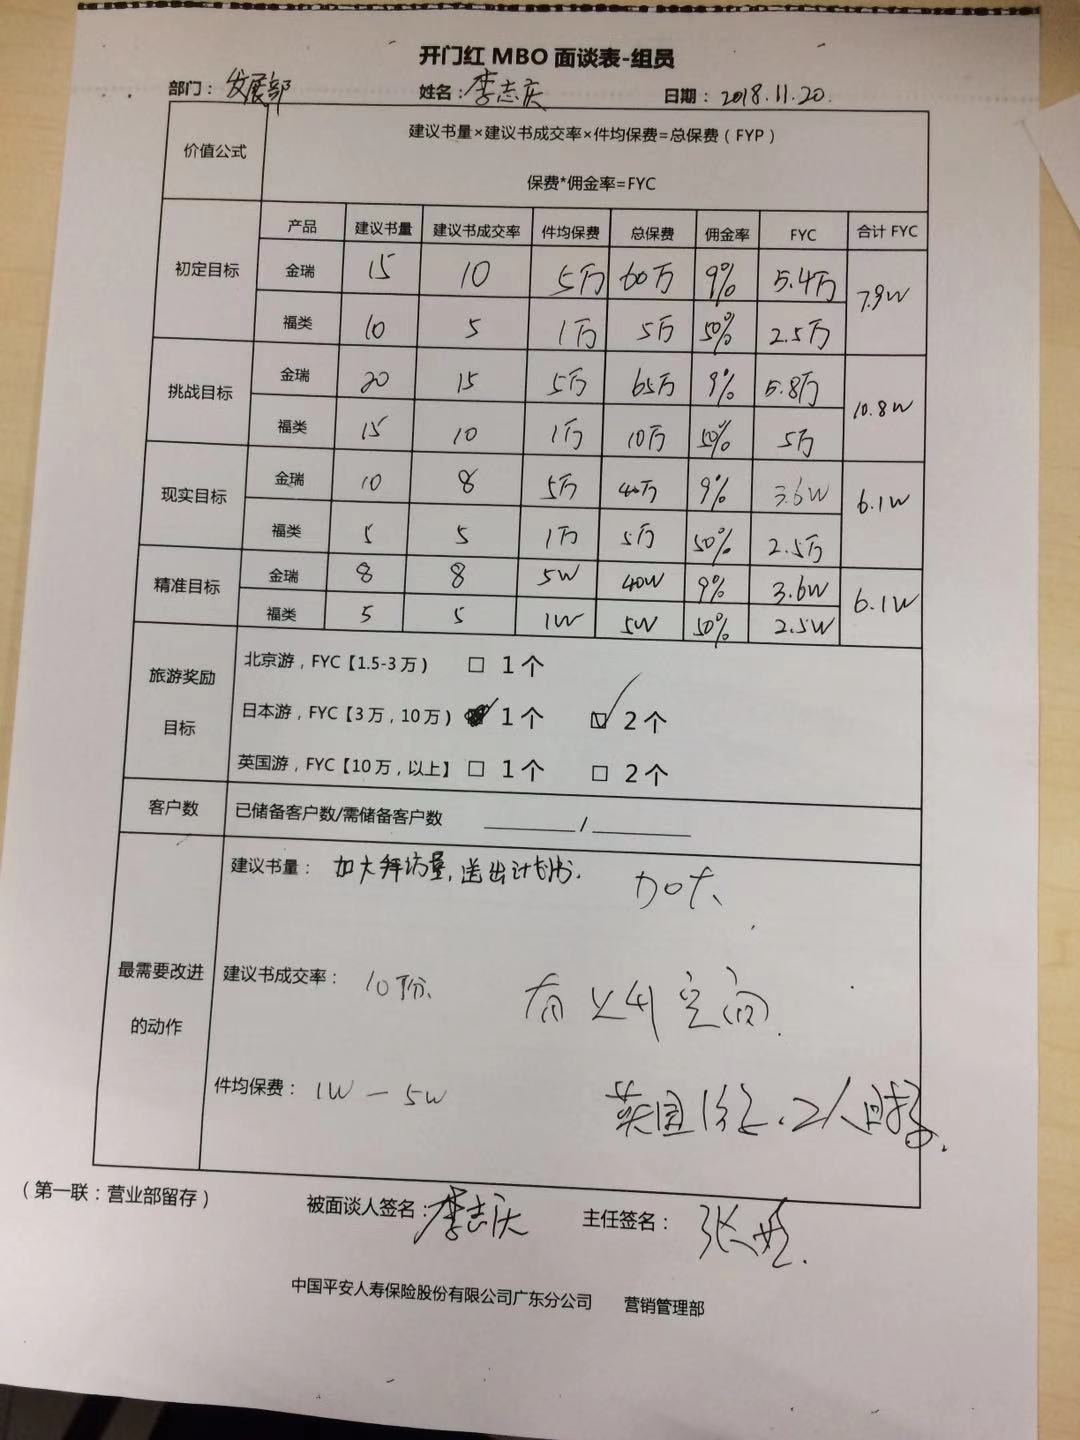 开门红 MBO 面谈表-组员
部门：发展部 姓名：李志庆 日期：2018.11.20.
价值公式
建议书量×建议书成交率×件均保费=总保费（FYP）
保费*佣金率=FYC
产品 建议书量 建议书成交率 件均保费 总保费 佣金率 FYC 合计 FYC
初定目标
金瑞 15 10 5万 60万 9% 5.4万 7.9W
福类 10 5 1万 5万 50% 2.5万
挑战目标
金瑞 20 15 5万 65万 9% 5.8万 10.8W
福类 15 10 1万 10万 50% 5万
现实目标
金瑞 10 8 5万 40万 9% 3.6W 6.1W
福类 5 5 1万 5万 50% 2.5万
精准目标
金瑞 8 8 5W 40W 9% 3.6W 6.1W
福类 5 5 1W 5W 50% 2.5W
旅游奖励
目标
北京游，FYC【1.5-3万） □ 1个
日本游，FYC【3万，10万） 1个 ☑ 2个
英国游，FYC【10万，以上】 □ 1个 □ 2个
客户数
已储备客户数/需储备客户数 ______/______
最需要改进
的动作
建议书量：加大拜访量，送出计划书. 加大
建议书成交率：10份. 空间
件均保费：1W — 5W
英国 2人
（第一联：营业部留存） 被面谈人签名：李志庆 主任签名：张
中国平安人寿保险股份有限公司广东分公司 营销管理部